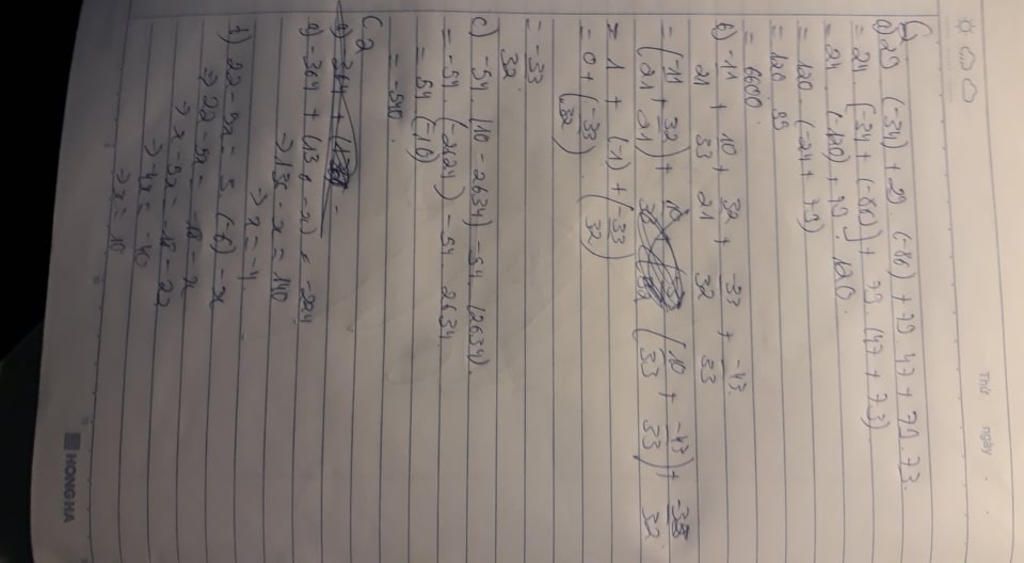 Thứ ngày
C1
a) 29 . (-34) + 29 . (-86) + 79 . 47 + 79 . 73.
= 24 . [-34 + (-86)] + 79 . (47 + 73)
= 24 . (-120) + 79 . 120
= 120 . (-24 + 79)
= 120 . 55
= 6600
b) -11/21 + 10/33 + 32/21 + -33/32 + -43/33
= (-11/21 + 32/21) + (10/33 + -43/33) + -33/32
= 1 + (-1) + (-33/32)
= 0 + (-33/32)
= -33/32
c) -54 . (10 - 2634) - 54 . (2634).
= -54 . (-2624) - 54 . 2634
= 54 . (-10)
= -540
C2
a) -364 + (136 - x) = -224
=> 136 - x = 140
=> x = -4
b) 22 - 5x = 3 . (-6) - x
=> 22 - 5x = -18 - x
=> x - 5x = -18 - 22
=> -4x = -40
=> x = 10
HONG HA